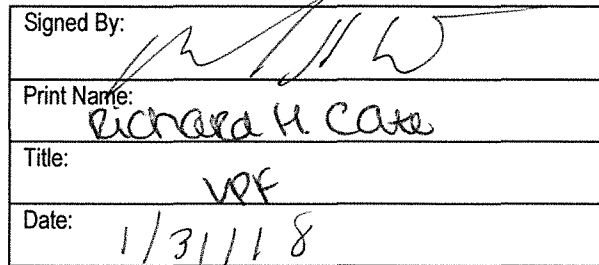 Signed By:
Print Name:
Richard H. Cate
Title:
VPF
Date:
1/31/18